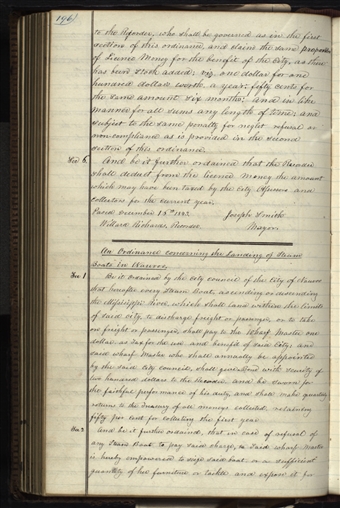 196
to the Recorder, who shall be governed as in the first
section of this ordinance, and claim the same proportion
of License Money for the benefit of the City, as there
has been Stock added: viz. one dollar for one
hundred dollars worth a year; fifty cents for
the same amount six months; and in like
manner for all sums any length of time; and
subject to the same penalty for neglect refusal or
non compliance as is provided in the second
section of this ordinance.
Sec 6. And be it further ordained that the Recorder
shall deduct from the licence money the amount
which may have been taxed by the City Assessors and
collectors for the current year.
Passed December 15th 1843. Joseph Smith
Willard Richards, Recorder. Mayor.
An Ordinance concerning the Landing of Steam
Boats in Nauvoo.
Sec. 1 Be it ordained by the city council of the City of Nauvoo
that hereafter every Steam Boat, ascending or descending
the Mississippi River, which shall land within the limits
of said City, to discharge freight or passengers, or to take
on freight or passengers, shall pay to the Wharf Master one
dollar as Tax for the use and benefit of said City; and
said Wharf Master who shall annually be appointed
by the said City council, shall give bonds with security of
two hundred dollars to the Recorder, and be sworn for
the faithful performance of his duty, and shall make quarterly
returns to the Treasury of all moneys collected, retaining
fifty per cent for collecting the first year.
Sec. 2 And be it further ordained, that in case of refusal of
any Steam Boat to pay said charge, the said Wharf Master
is hereby empowered to seize said boat or a sufficient
quantity of her furniture or tackle and expose it for